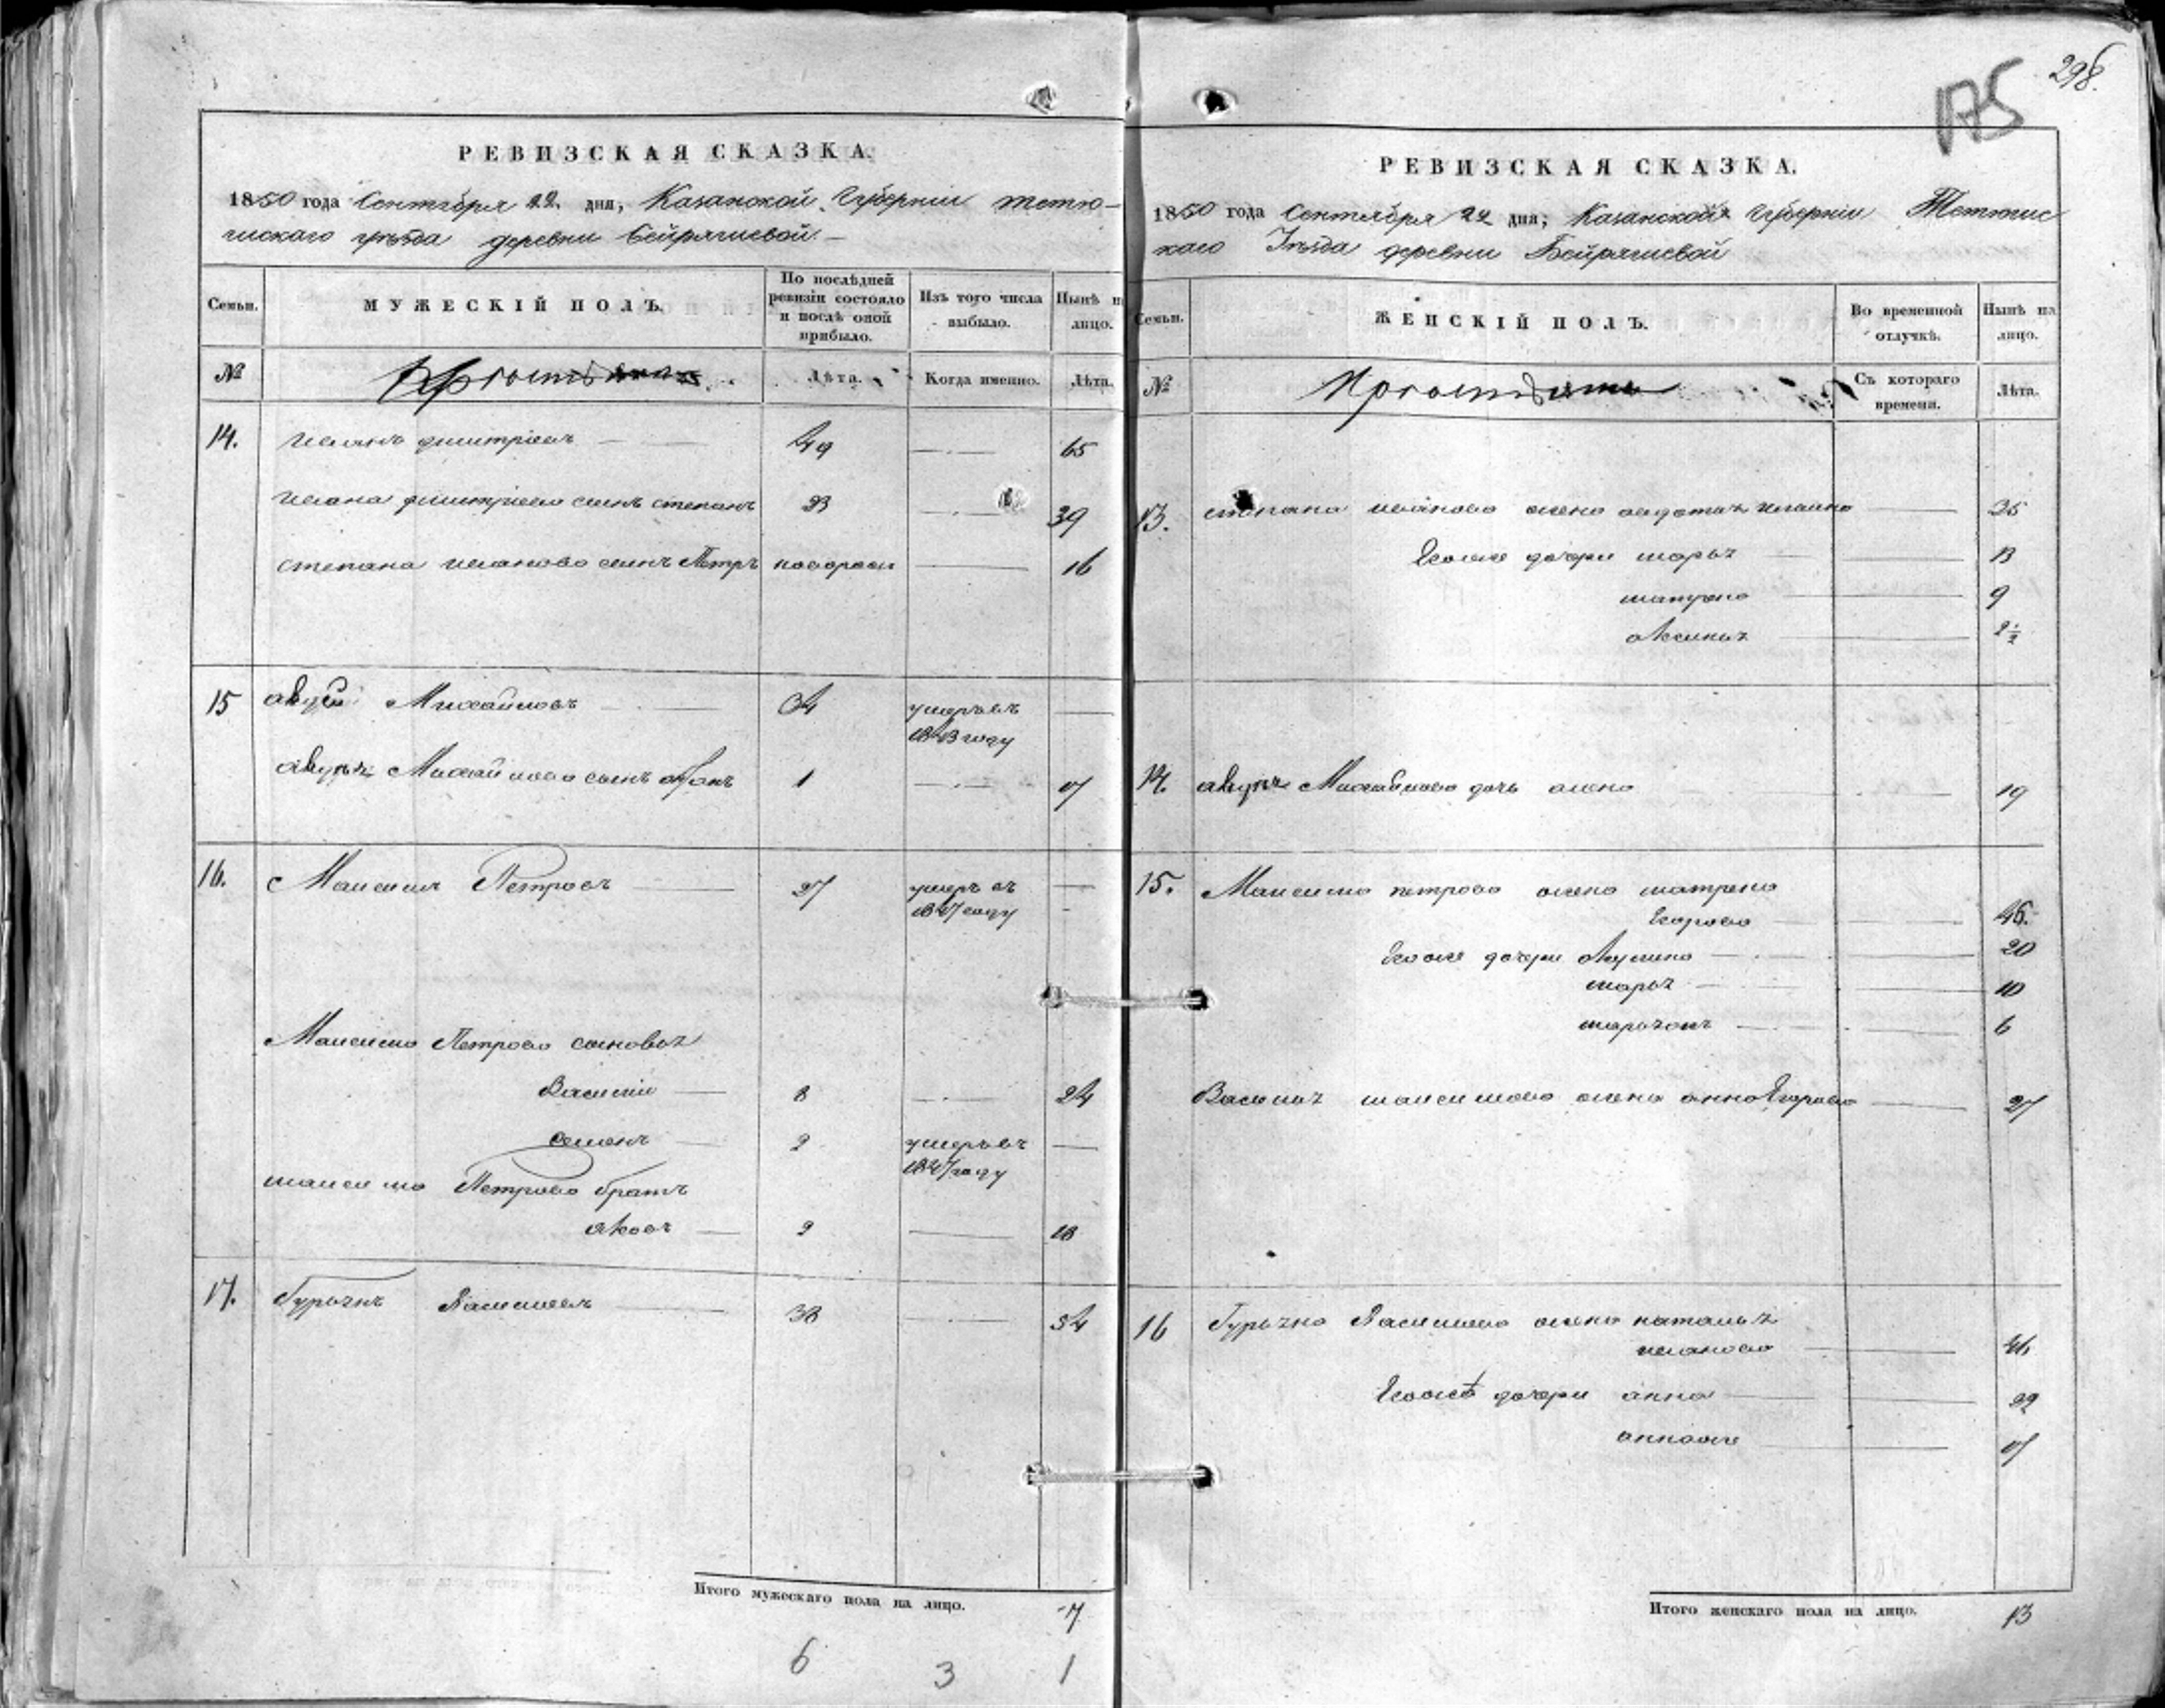 РЕВИЗСКАЯ СКАЗКА.
1850 года Сентября 22. дня, Казанской Губерніи тетю-
шскаго уѣзда деревни Бейряшевой
Семьи.
МУЖЕСКІЙ ПОЛЪ.
По послѣдней ревизіи состояло и послѣ оной прибыло.
Изъ того числа выбыло.
Нынѣ н лицо.
№
Лѣта.
Когда именно.
Лѣта.
14. иванъ димитріевъ 49 65
ивана димитріева сынъ степанъ 23 39
степана иванова сынъ Петръ 16
15 Михайловъ 34 умеръ въ
1843 году
Михайлова сынъ 1 17
16. Максимъ Петровъ 27 умеръ въ
1847 году
Максима Петрова сыновья
Василіи 8 24
семенъ 2 умеръ въ
1847 году
максима Петрова братъ
яковъ 2 18
17. Гурьянъ Васильевъ 38 54
Итого мужескаго пола на лицо. 7
6 3 1
175 298.
РЕВИЗСКАЯ СКАЗКА.
1850 года Сентября 22 дня, Казанской Губерніи Тетюшс
каго Уѣзда деревни Бейряшевой
Семьи.
ЖЕНСКІЙ ПОЛЪ.
Во временной отлучкѣ.
Нынѣ на лицо.
№
Съ котораго времени.
Лѣта.
13. степана иванова жена авдотья 35
Егоже дочери марья 13
матрена 9
аксинья 2½
14. Михайлова дочь алена 19
15. Максима петрова жена матрена
Егорова 45.
Егоже дочери Акулина 20
марья 10
марьяна 6
Василья максимова жена анна Егорова 27
16 Гурьяна Васильева жена наталья
иванова 46.
Егоже дочери анна 22
17
Итого женскаго пола на лицо. 13